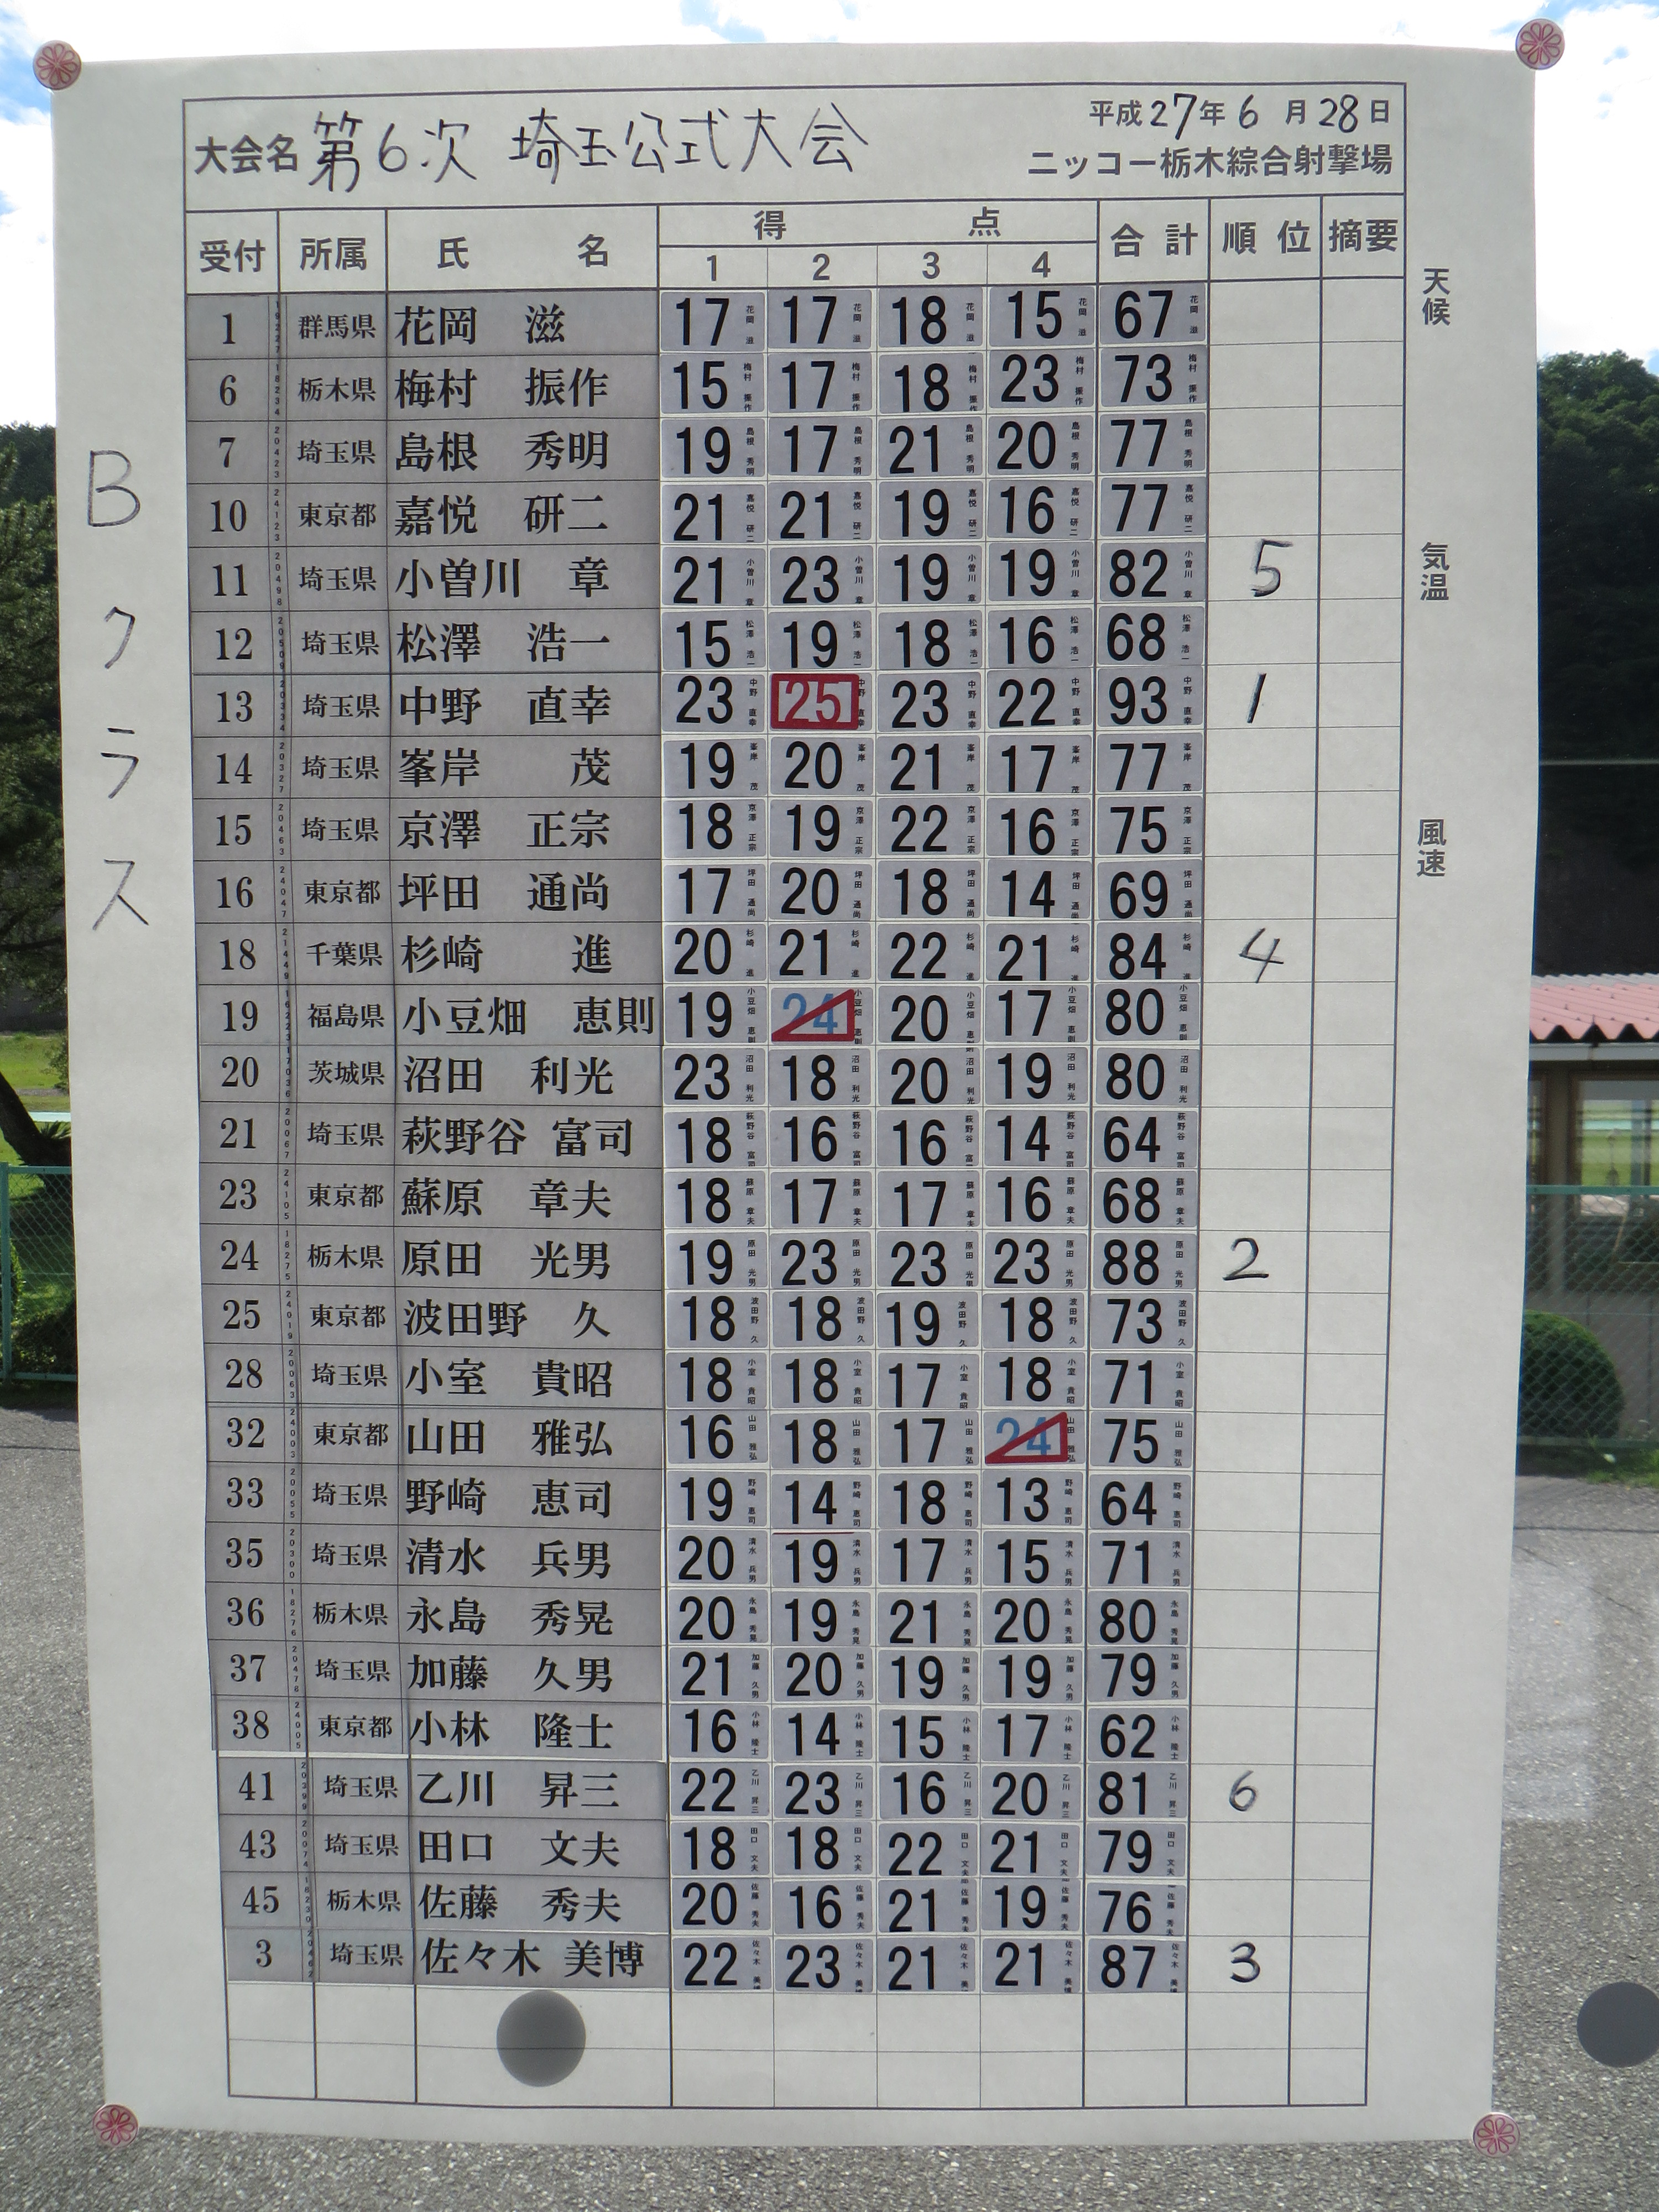 平成27年6月28日
大会名 第6次 埼玉公式大会
ニッコー栃木綜合射撃場
受付 所属 氏名 得点 合計 順位 摘要
1 2 3 4
1 群馬県 花岡 滋 17 17 18 15 67
6 栃木県 梅村 振作 15 17 18 23 73
7 埼玉県 島根 秀明 19 17 21 20 77
10 東京都 嘉悦 研二 21 21 19 16 77
11 埼玉県 小曽川 章 21 23 19 19 82 5
12 埼玉県 松澤 浩一 15 19 18 16 68
13 埼玉県 中野 直幸 23 25 23 22 93 1
14 埼玉県 峯岸 茂 19 20 21 17 77
15 埼玉県 京澤 正宗 18 19 22 16 75
16 東京都 坪田 通尚 17 20 18 14 69
18 千葉県 杉崎 進 20 21 22 21 84 4
19 福島県 小豆畑 恵則 19 24 20 17 80
20 茨城県 沼田 利光 23 18 20 19 80
21 埼玉県 萩野谷 富司 18 16 16 14 64
23 東京都 蘇原 章夫 18 17 17 16 68
24 栃木県 原田 光男 19 23 23 23 88 2
25 東京都 波田野 久 18 18 19 18 73
28 埼玉県 小室 貴昭 18 18 17 18 71
32 東京都 山田 雅弘 16 18 17 24 75
33 埼玉県 野崎 恵司 19 14 18 13 64
35 埼玉県 清水 兵男 20 19 17 15 71
36 栃木県 永島 秀晃 20 19 21 20 80
37 埼玉県 加藤 久男 21 20 19 19 79
38 東京都 小林 隆士 16 14 15 17 62
41 埼玉県 乙川 昇三 22 23 16 20 81 6
43 埼玉県 田口 文夫 18 18 22 21 79
45 栃木県 佐藤 秀夫 20 16 21 19 76
3 埼玉県 佐々木 美博 22 23 21 21 87 3
Bクラス
天候
気温
風速